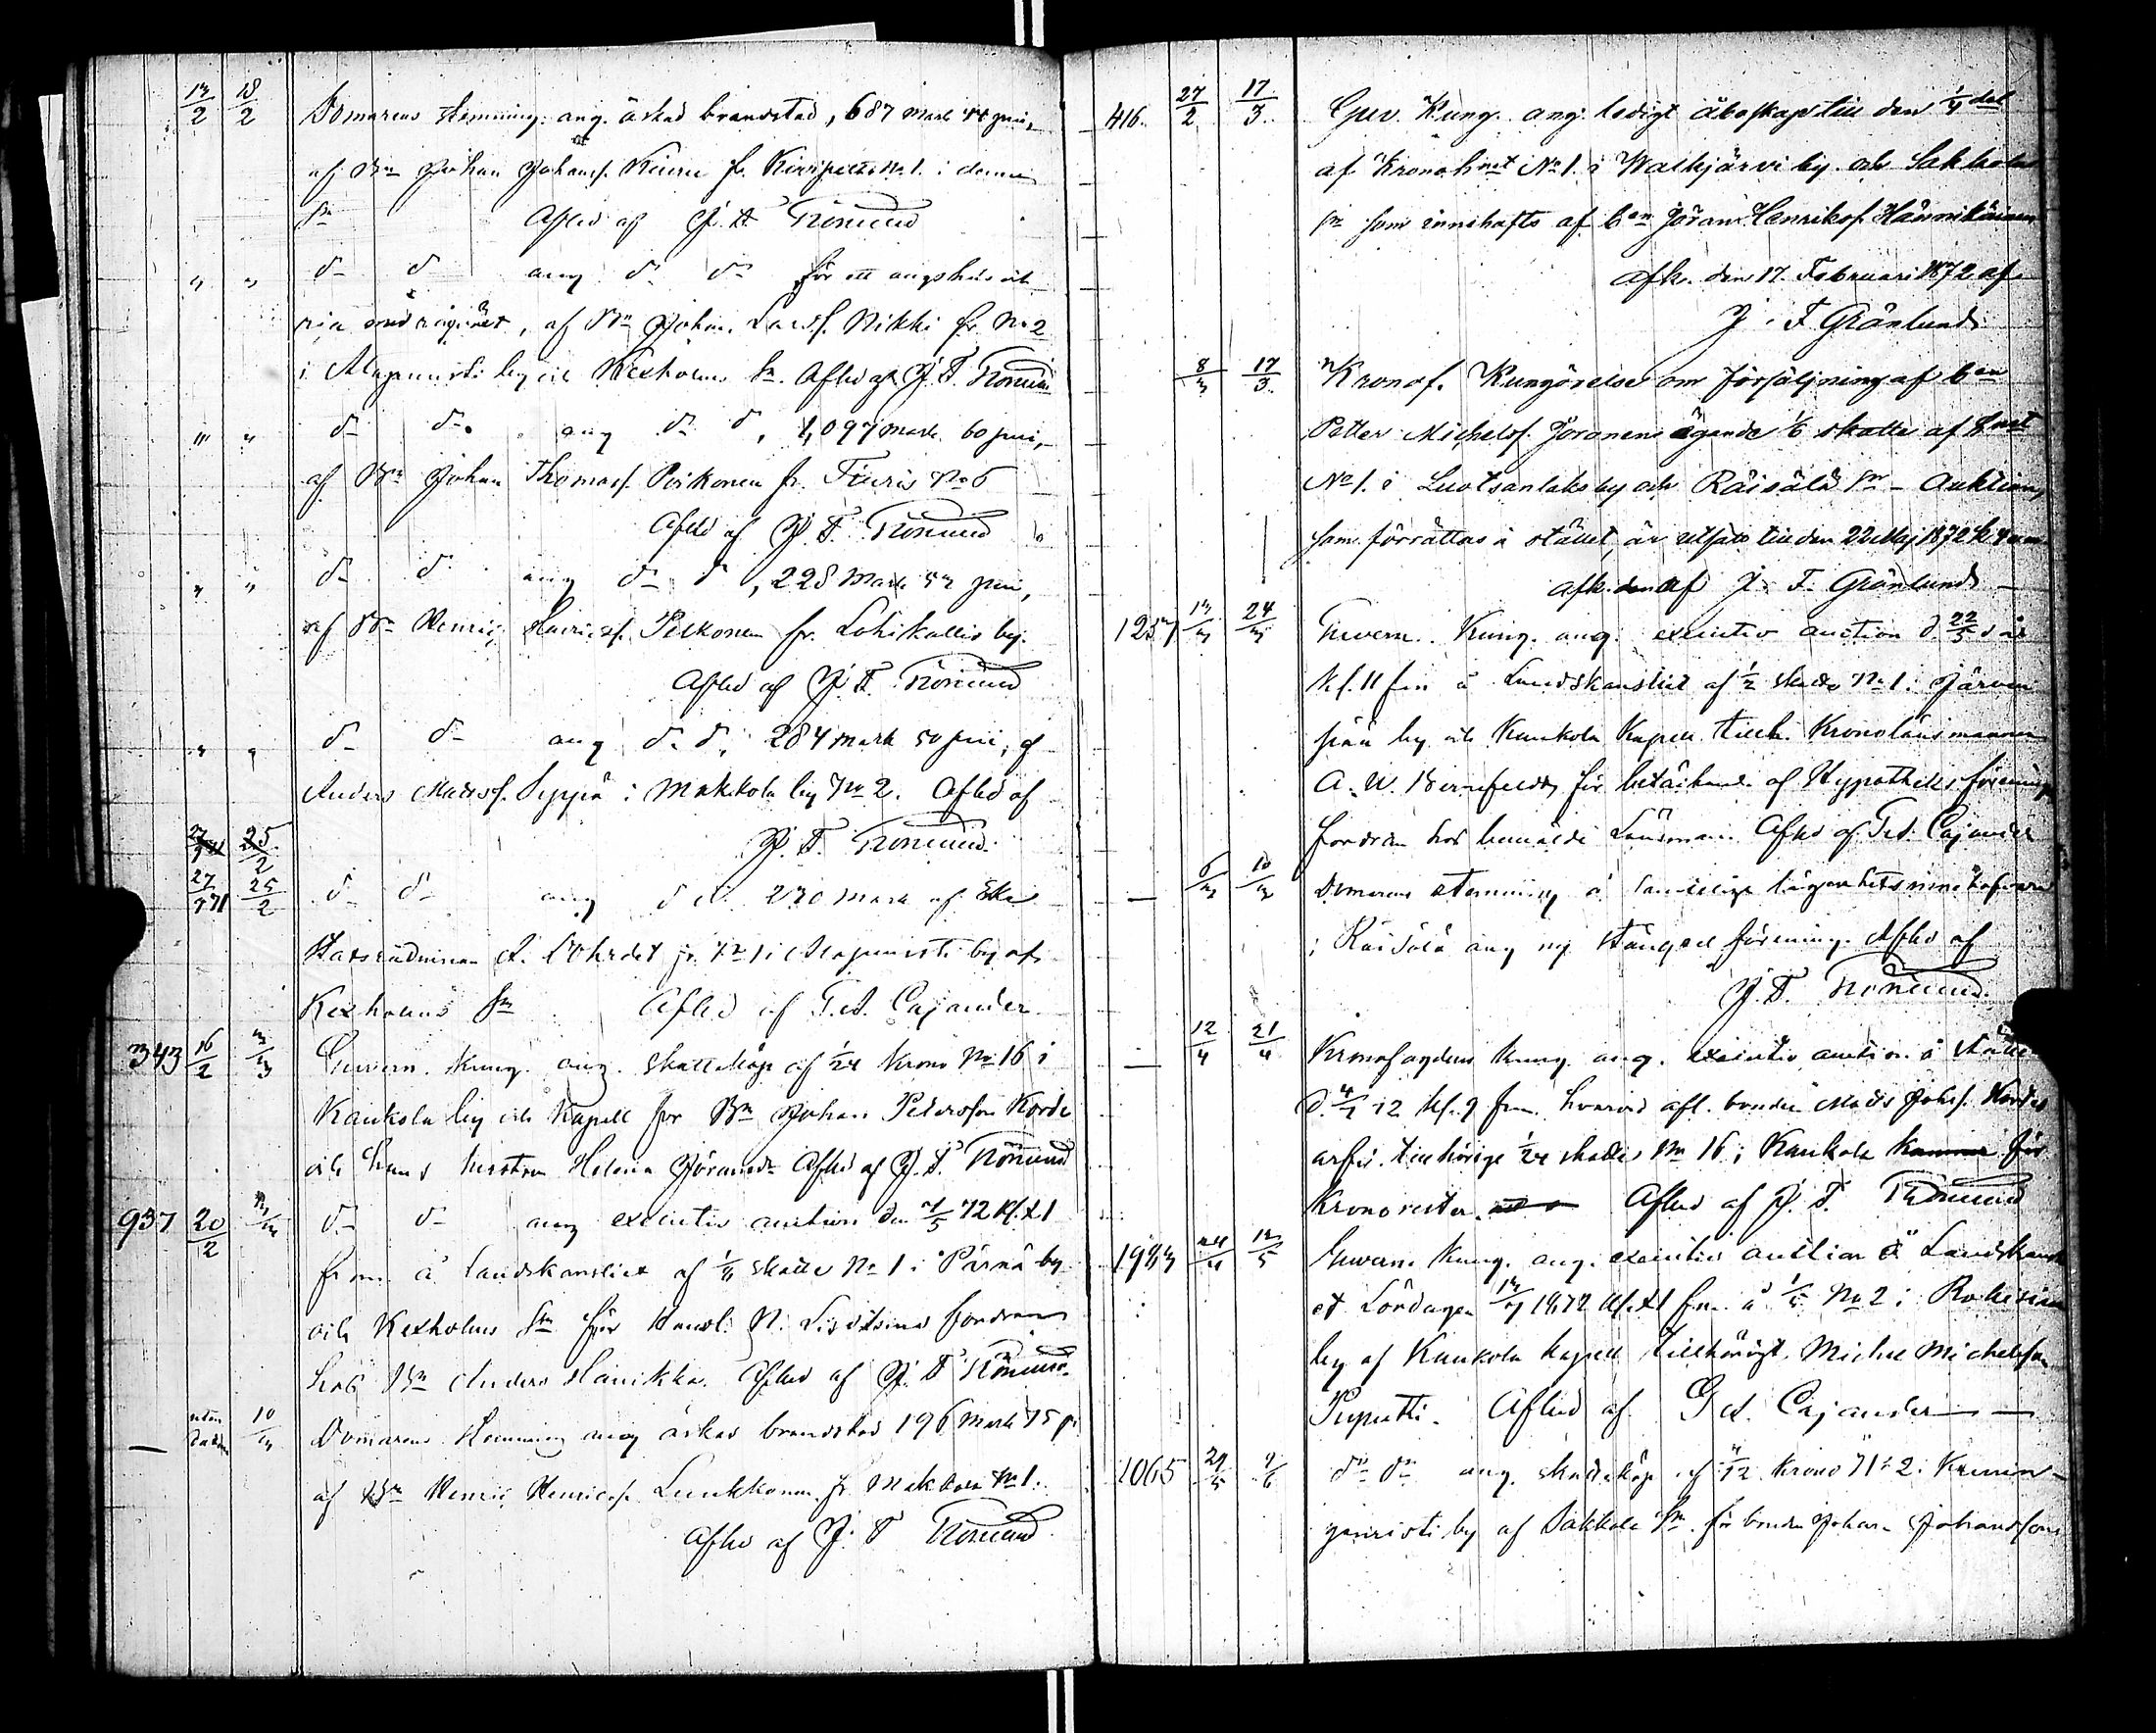 13/2 18/2 Domarens Stemning ang. äskad brandstod, 687 mark 44 pni,
af Bn Johan Johansf. Kiuru fr. Kiuripelto No 1. i denna
Sn Aflid af J. F. Grönlund
" " d- d- ang d- d- för ett ångshus och
ria med rågödet, af Bn Johan Larsf. Nikki fr. No 2
i Alapuusti by och Kexholms Sn. Aflid af J. F. Grönlund
" " d- d- ang d- d-, 1,097 mark 60 pni,
af Bn Johan Thomasf. Poikonen fr. Tiuris No 6
Aflid af J. F. Grönlund
" " d- d- ang d- d-, 228 mark 52 pni,
af Bn Henric Henricsf. Pelkonen fr. Lohikallio by.
Aflid af J. F. Grönlund
" " d- d- ang d- d- 284 mark 50 pni, af
Anders Mattsf. Seppä i Makkola by No 2. Aflid af
J. F. Grönlund.
25/2
27/ 71 25/2 d- d- ang d- d- 230 mark af
Statsrådinnan A. fr. No 1 i Alapuusti by af
Kexholms Sn Aflid af G. A. Cajander
343 16/2 3/3 Guvern. kung. ang. skatteköp af 1/24 krono No 16 i
Kaukola by och Kapell för Bn Johan Pedersson Korte
och hans hustru Helena Göransdr Aflid af J. F. Grönlund
937 20/2 3/3 d- d- ang executiv auction den 7/5 72 kl. 11
fm. å Landskansliet af 1/4 skatte No 1 i Pärnä by
och Kexholms Sn för Handl. N. Lisitsins fordran
hos Bn Anders Hanikka. Aflid af J. F. Grönlund.
— utan datum 10/3 Domarens Stemning ang äskad brandstod 196 mark 75 p.
af Bn Henric Henricsf. Luukkonen fr. Makkola No 1.
Aflid af J. F. Grönlund
416. 27/2 17/3. Guv. Kung. ang. ledigt åboskap till den 1/4 del
af Kronohmt No 1. i Walkjärvi by och Sakkola
sn som innehafts af bon Jöran Henriksf. Hännikäinen
Afk. den 17. Februari 1872 af
J. F. Grönlund.
8/3 17/3. Kronof. Kungörelse om försäljning af bon
Petter Michelsf. Joronens ägande 1/6 skatte af Hmt
No 1. i Luotsanlaks by och Räisälä Sn - Auktionen
som förrättas å stället, är utsatt till den 22 Maj 1872 kl
afk. af J. F. Grönlund —
1257 13/3 24/3 Guvern. Kung. ang. executiv auction d. 22/5 d. år
kl. 11 fm å Landskansliet af 1/2 skatte No 1. i Järven
pää by och Kaukola Kapell tillh. Kronolänsmannen
A. W. Bernfeldt, för betäckande af Hypotheksförenings
fordran hos bemälde Länsman. Aflid af G. A. Cajander
— 6/3 10/3 Domarens stemning å samtelige lägenhetsinnehafvare
i Räisälä ang ny stängsel förening. Aflid af
J. F. Grönlund.
— 12/4 21/4 Kronofogdens kung. ang. executiv auction å stället
d. 4/5 72 kl. 9 fm. hvarvid afl. bonden Matts Johsf. Kortes
arfv. tillhörige 1/24 skatte No 16 i Kaukola för
Kronorester. Aflid af J. F. Grönlund
1983 24/4 12/5 Guvern. kung. ang. executiv auction å Landskansli
et Lördagen 13/7 1872 kl. 11 fm. å 1/5 No 2 i
by af Kaukola kapell tillhörigt Michel Michelsson
Puputti. Aflid af G A. Cajander —
2065 29/5 9/6 do do ang. skatteköp af 4/12 krono No 2. i Kunin-
ganristi by af Sakkola Sn. för bonden Johan Johansson